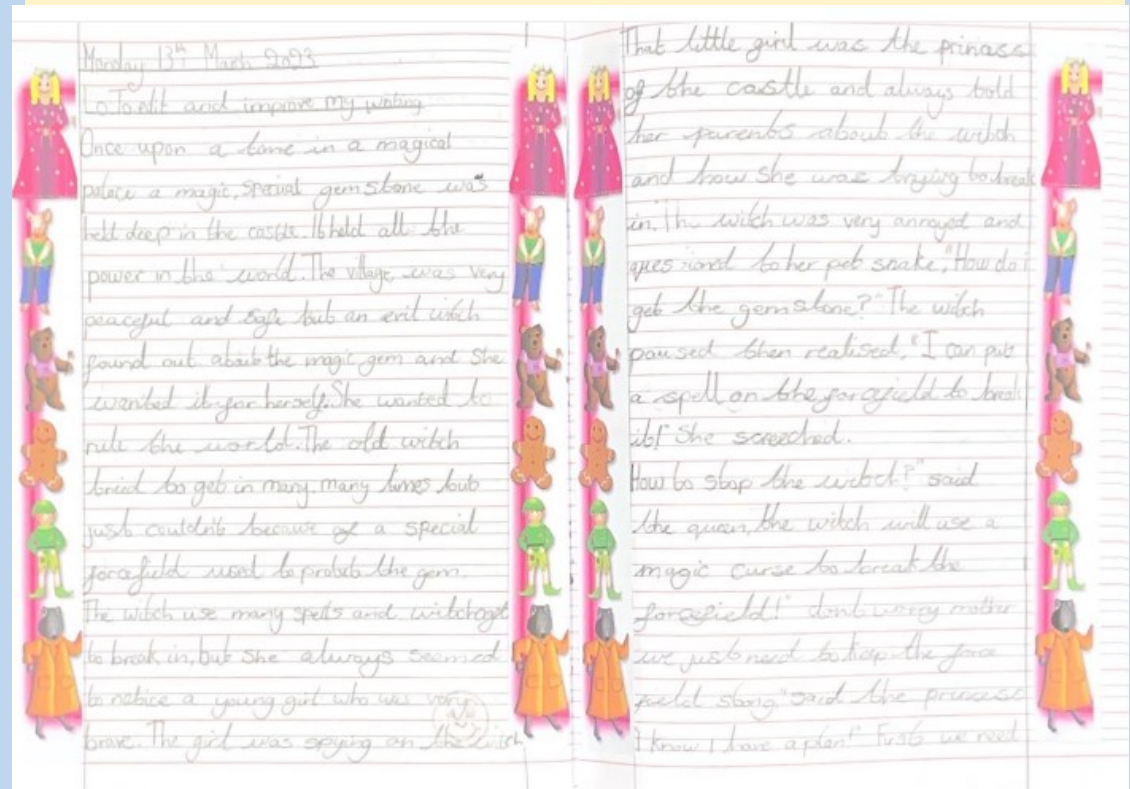 Monday 13th March 2023
LO To edit and improve my writing
Once upon a time in a magical
palace a magic, special gemstone was
held deep in the castle. It held all the
power in the world. The village was very
peaceful and safe but an evil witch
found out about the magic gem and she
wanted it for herself. She wanted to
rule the world. The old witch
tried to get in many, many times but
just couldn't because of a special
forcefield used to protect the gem.
The witch use many spells and
to break in, but she always seemed
to notice a young girl who was very
brave. The girl was spying on the witch
That little girl was the
of the castle and always told
her parents about the witch
and how she was trying to break
in. The witch was very annoyed and
to her pet snake, "How do i
get the gemstone?" The witch
paused then realised, "I can put
a spell on the to break
it!" She screeched.
How to stop the said
the queen, the witch will use a
magic curse to break the
forcefield!" dont worry mother
we just need to keep the force
field said the princess
I know I have a plan!" First we need